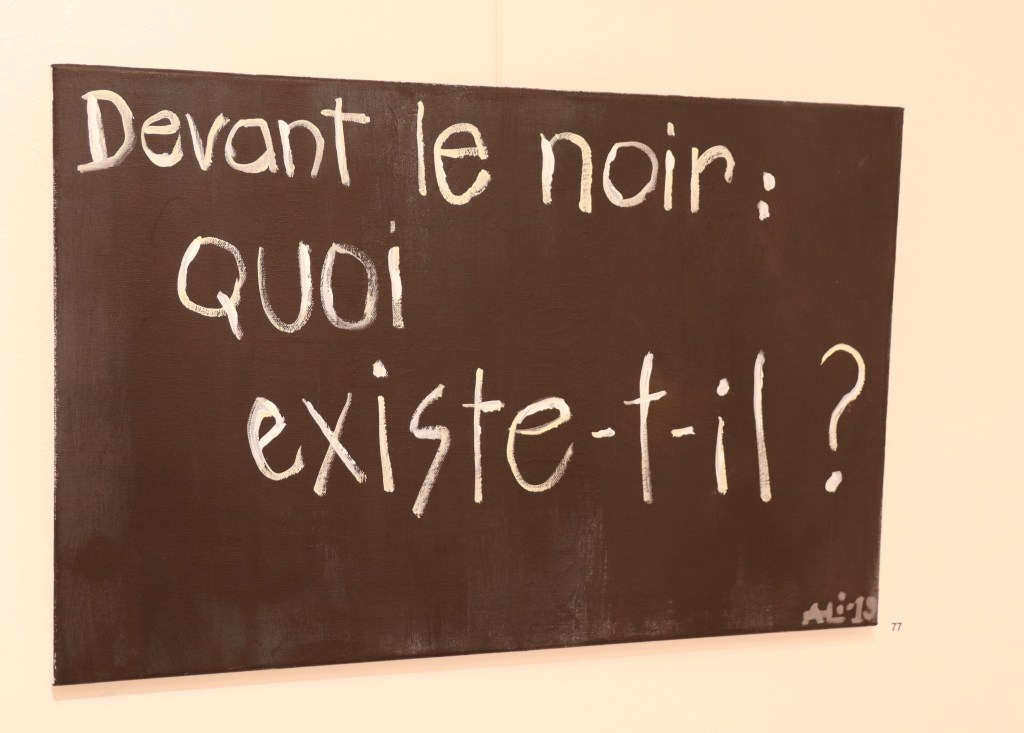 Devant le noir:
QUOi
existe-t-il ?
ALi-19
77